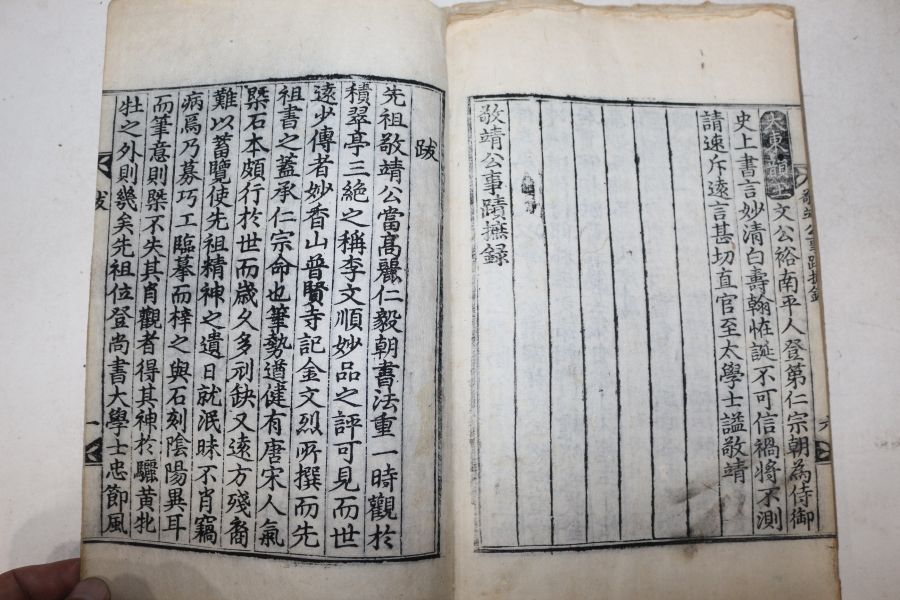 大東韻玉 文公裕南平人登第仁宗朝為侍御
史上書言妙清白壽翰恠誕不可信禍將不測
請速斥遠言甚切直官至太學士謚敬靖
敬靖公事蹟摭錄
敬靖公事蹟摭錄
六
跋
先祖敬靖公當高麗仁毅朝書法重一時觀於
積翠亭三絶之稱李文順妙品之評可見而世
遠少傳者妙香山普賢寺記金文烈所撰而先
祖書之蓋承仁宗命也筆勢遒健有唐宋人氣
槩石本頗行於世而歲久多刓缺又遠方殘裔
難以蓄覽使先祖精神之遺日就泯昧不肖竊
病焉乃募巧工臨摹而梓之與石刻陰陽異耳
而筆意則槩不失其肖觀者得其神於驪黃牝
牡之外則幾矣先祖位登尚書大學士忠節風
跋
一